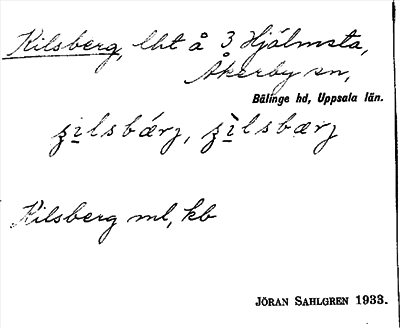 Kilsberg, lht å 3 Hjälmsta,
Åkerby sn,
Bälinge hd, Uppsala län.
Kilsberg ml, kb
JÖRAN SAHLGREN 1933.